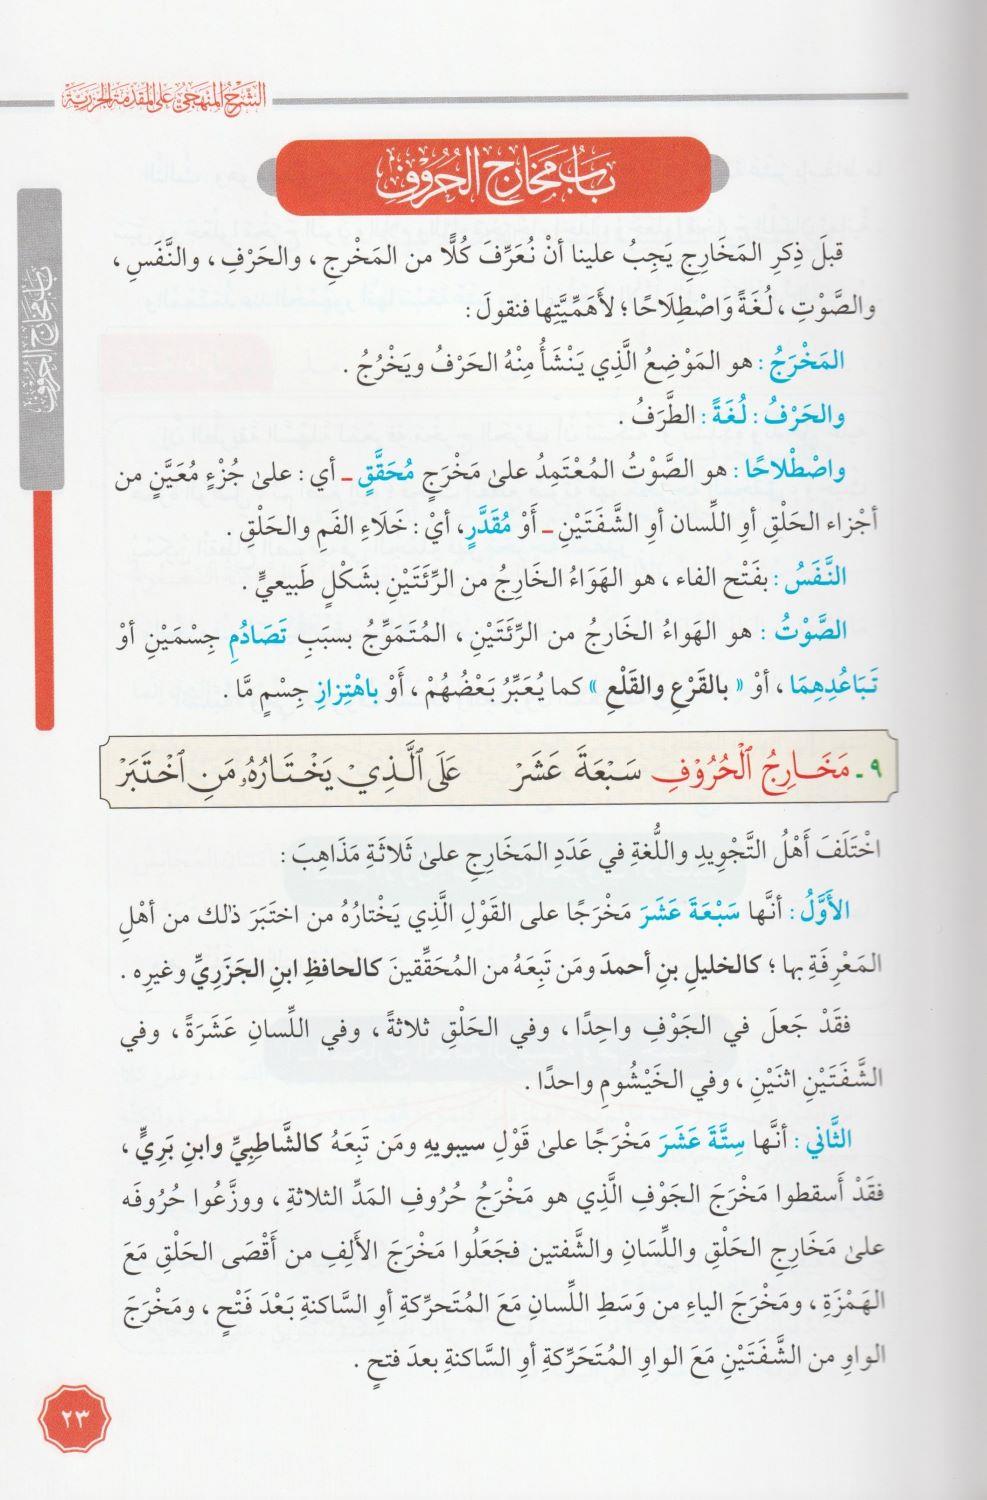 الشرح المنهجي على المقدمة الجزرية
باب مخارج الحروف
باب مخارج الحروف
قبلَ ذِكرِ المَخَارِجِ يَجِبُ علينا أنْ نُعَرِّفَ كُلًّا من المَخْرجِ ، والحَرْفِ ، والنَّفَسِ ،
والصَّوْتِ ، لُغَةً وَاصْطِلَاحًا ؛ لأهَمِيَّتِها فنقولَ :
المَخْرَجُ : هو المَوْضِعُ الَّذِي يَنْشَأُ مِنْهُ الحَرْفُ ويَخْرُجُ .
والحَرْفُ : لُغَةً : الطَّرَفُ .
واصْطْلاحًا : هو الصَّوْتُ المُعْتَمِدُ علىٰ مَخْرَجٍ مُحَقَّقٍ ـ أي : علىٰ جُزْءٍ مُعَيَّنٍ من
أجْزاء الحَلْقِ أو اللِّسان أو الشَّفَتَيْنِ ـ أَوْ مُقَدَّرٍ ، أيْ : خَلَاءِ الفَمِ والحَلْقِ .
النَّفَسُ : بفَتْح الفاء ، هو الهَوَاءُ الخَارِجُ من الرِّئَتَيْنِ بشَكْلٍ طَبيعيٍّ .
الصَّوْتُ : هو الهَواءُ الخَارجُ من الرِّئَتَيْنِ ، المُتَمَوِّجُ بسبَبِ تَصَادُمِ جِسْمَيْنِ أوْ
تَبَاعُدِهِمَا ، أوْ « بالقَرْعِ والقَلْعِ » كما يُعَبِّرُ بَعْضُهُمْ ، أَوْ باهْتِزازِ جِسْمٍ مَّا .
٩ ـ مَخَارِجُ الْحُرُوْفِ سَبْعَةَ عَشَرْ عَلَى ٱلَّذِيْ يَخْتَارُهُۥ مَنِ ٱخْتَبَرْ
اخْتَلَفَ أَهْلُ التَّجْوِيدِ واللُّغةِ في عَدَدِ المَخَارِجِ علىٰ ثَلاثَةِ مَذَاهِبَ :
الأَوَّلُ : أنَّها سَبْعَةَ عَشَرَ مَخْرَجًا على القَوْلِ الَّذِي يَخْتارُهُ من اختَبَرَ ذٰلك من أهْلِ
المَعْرِفَةِ بها ؛ كالخليلِ بنِ أحمدَ ومَن تَبِعَهُ من المُحَقِّقينَ كالحافظِ ابنِ الجَزَرِيِّ وغيره .
فقَدْ جَعلَ في الجَوْفِ واحِدًا ، وفي الحَلْقِ ثلاثةً ، وفي اللِّسانِ عَشَرَةً ، وفي
الشَّفَتَيْنِ اثنَيْنِ ، وفي الخَيْشُومِ واحدًا .
الثَّاني : أنَّها سِتَّةَ عَشَرَ مَخْرَجًا علىٰ قَوْلِ سيبويهِ ومَن تَبِعَهُ كالشَّاطِبِيِّ وابنِ بَرِيٍّ ،
فقَدْ أَسقطوا مَخْرَجَ الجَوْفِ الَّذِي هو مَخْرَجُ حُرُوفِ المَدِّ الثلاثةِ ، ووزَّعُوا حُرُوفَه
علىٰ مَخَارِجِ الحَلْقِ واللِّسَانِ والشَّفتين فجَعَلُوا مَخْرَجَ الأَلِفِ من أَقْصَى الحَلْقِ مَعَ
الهَمْزَةِ ، ومَخْرَجَ الياءِ من وَسَطِ اللِّسانِ مَعَ المُتَحرِّكةِ أوِ السَّاكنةِ بَعْدَ فَتْحٍ ، ومَخْرَجَ
الواوِ من الشَّفَتَيْنِ مَعَ الواوِ المُتَحَرِّكةِ أوِ السَّاكنةِ بعدَ فتحٍ .
٢٣